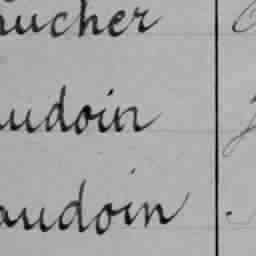 aucher
audoin
audoin